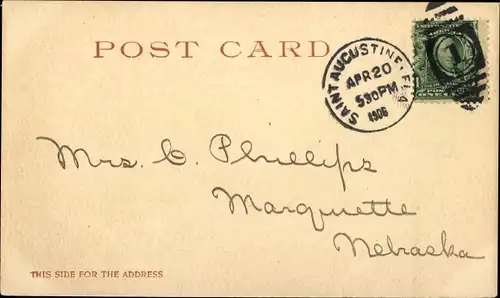 POST CARD
SAINT AUGUSTINE, FLA
APR 20
530 PM
1906
1
Mrs. C. Phillips
Marquette
Nebraska
THIS SIDE FOR THE ADDRESS